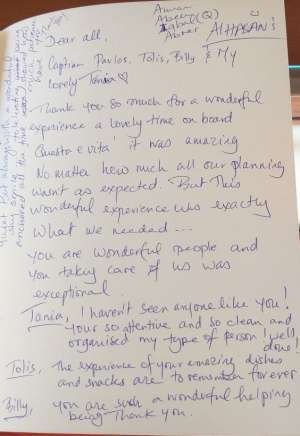 Amman
Abeer
Abrar
AlHASAN's
Dear all,
Captain Pavlos, Tolis, Billy & My
lovely Tania ♡
Thank you so much for a wonderful
experience a lovely time on board
Questa e vita' it was amazing
No matter how much all our planning
wasnt as expected. But This
wonderful experience was exactly
what we needed...
you are wonderful people and
you taking care of us was
exceptional.
Tania, I haven't seen anyone like you!
your so attentive and so clean and
organised my type of person! well
done!
Tolis, the experience of your amazing dishes
and snacks are to remember for ever
Billy, you are such a wonderful helping
being Thank you.